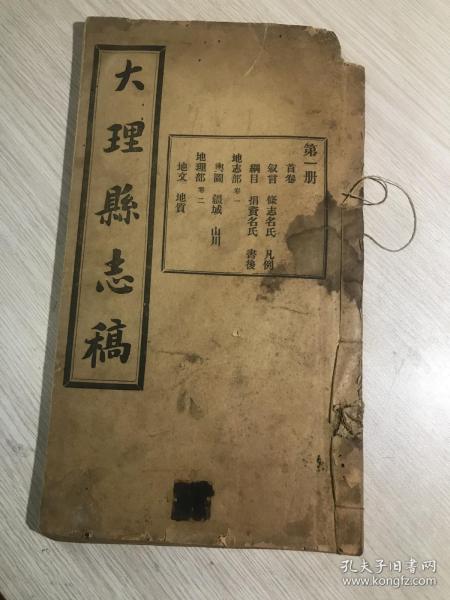 大理縣志稿
第一册
首卷
叙言 修志名氏 凡例
綱目 捐資名氏 書後
地志部 卷一
輿圖 疆域 山川
地理部 卷二
地文 地質
孔夫子旧书网
www.kongfz.com